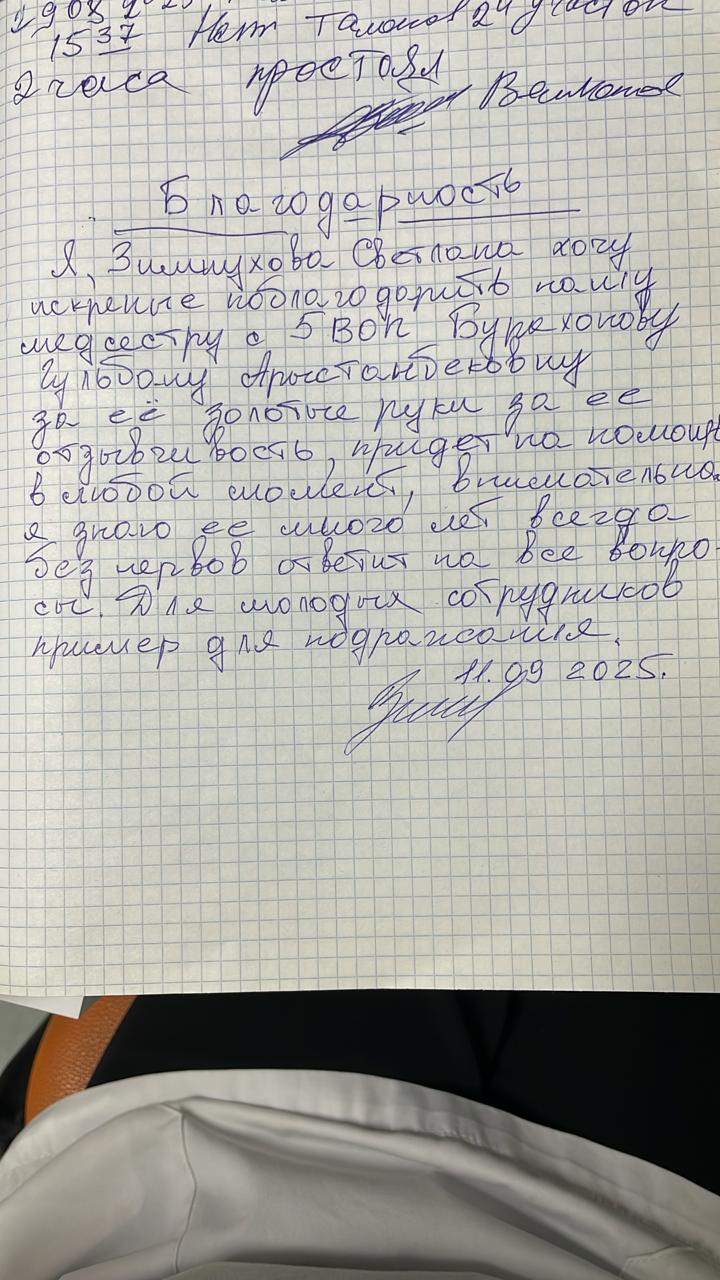 29.08.2025
15 37 Нет Талонов 24 участок
2 часа простоял
Благодарность
Я, Зимнухова Светлана хочу
искренне поблагодорить нашу
медсестру с 5 ВОП Бурахонову
Гульбому Арыстанбековну
за её золотые руки за ее
отзывчивость, придет на помощь
в любой момент, внимательная
я знаю ее много лет всегда
без нервов ответит на все вопро-
сы. Для молодых сотрудников
пример для подражания.
11.09 2025.